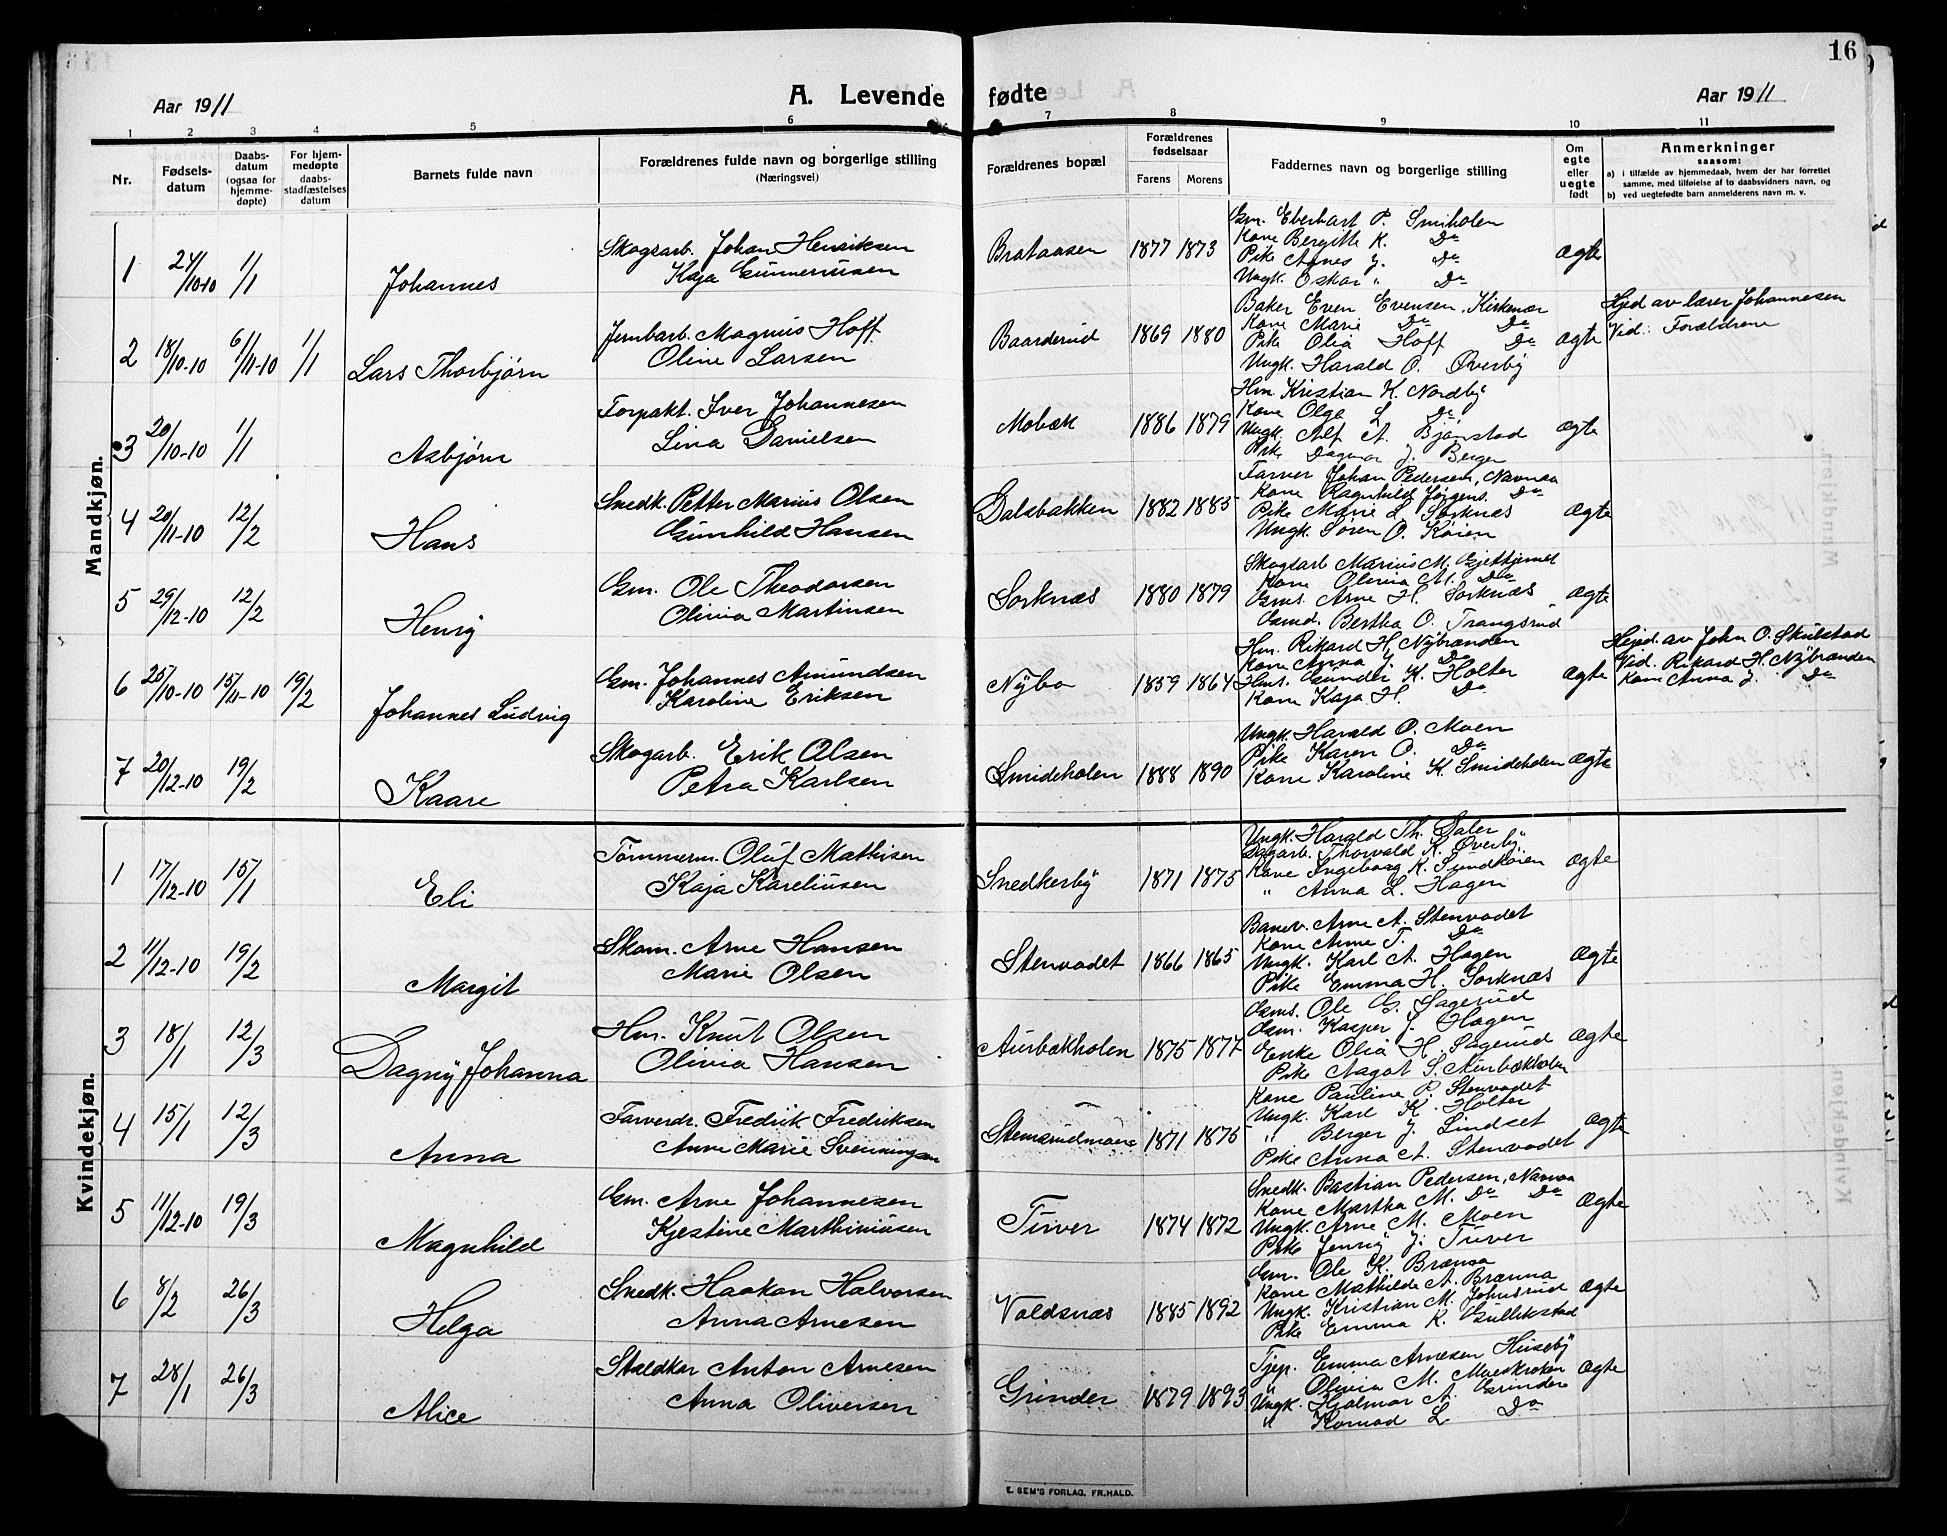 16
Aar 1911
A. Levende fødte
Aar 1911
1 2 3 4 5 6 7 8 9 10 11
Nr.
Fødsels-
datum
Daabs-
datum
(ogsaa for
hjemme-
døpte)
For hjem-
medøpte
daabs-
stadfæstelses
datum
Barnets fulde navn
Forældrenes fulde navn og borgerlige stilling
(Næringsvei)
Forældrenes bopæl
Forældrenes
fødselsaar
Farens Morens
Faddernes navn og borgerlige stilling
Om
egte
eller
uegte
født
Anmerkninger
saasom:
a) i tilfælde av hjemmedaab, hvem der har forrettet
samme, med tilføielse af to daabsvidners navn, og
b) ved uegtefødte barn anmelderens navn m. v.
Mandkjøn.
1 24/10-10 1/1 Johannes
Skogsarb. Johan Henriksen
Kaja Gunneriusen
Brataasen 1877 1873
Gm. Eberhart P. Smiholen
Kone Bergitte K. Do
Pike Agnes J. Do
Ungk. Oskar " Do
ægte
2 18/10-10 6/11-10 1/1 Lars Thorbjørn
Jernbarb. Magnus Hoff
Oline Larsen
Baarderud 1869 1880
Baker Even Evensen, Kirkenær
Kone Marie Do Do
Pike Olia Hoff Do
Ungk. Harald O. Øverby
ægte
Hjed av lærer Johannesen
Vid: Forældrene
3 20/10-10 1/1 Asbjørn
Forpakt. Iver Johannesen
Lina Danielsen
Mobæk 1886 1879
Hm. Kristian K. Nordby
Kone Olga L Do
Ungk. Alf A. Bjørnstad
Pike Dagmar J. Berger
ægte
4 20/11-10 12/2 Hans
Snedk. Petter Marius Olsen
Gunhild Hansen
Dalsbakken 1882 1885
Farver Johan Pedersen, Navnaa
Kone Ragnhild Jørgens. Do
Pike Marie L Sorknæs
Ungk. Søren O. Køien
ægte
5 29/12-10 12/2 Henry
Gm. Ole Theodorsen
Olivia Martinsen
Sorknæs 1880 1879
Skogsarb Marius M. Gjethjernet
Kone Olivia M. Do
Gms. Arne H. Sorknæs
Gmd. Bertha O. Trangsrud
ægte
6 25/10-10 15/11-10 19/2 Johannes Ludvig
Gm. Johannes Amundsen
Karoline Eriksen
Nybo 1859 1864
Hm. Rikard H. Nybrænden
Kone Anna J. Do
Hms. Gunder K. Holter
Kone Kaja H. Do
ægte
Hjed. av John O. Skulstad
Vid. Rikard H. Nybrænden
Kone Anna J. Do
7 20/12-10 19/2 Kaare
Skogarb. Erik Olsen
Petra Karlsen
Smideholen 1888 1890
Ungk. Harald O. Moen
Pike Karen O. Do
Kone Karoline K. Smideholen
ægte
Kvindekjøn.
1 17/12-10 15/1 Eli
Tømmerm. Oluf Mathisen
Kaja Kareliusen
Snedkerby 1871 1875
Ungk. Harald Th. Daler
Dagarb. Thorvald K. Øverby
Kone Ingeborg K. Sundkøien
" Anna L. Hagen
ægte
2 11/12-10 19/2 Margit
Skom. Arne Hansen
Marie Olsen
Stenvadet 1866 1865
Banev. Arne A. Stenvadet
Kone Anne T. Do
Ungk. Karl A. Hagen
Pike Emma H. Sorknæs
ægte
3 18/1 12/3 Dagny Johanna
Hm. Knut Olsen
Olivia Hansen
Aurbækholen 1875 1877
Gms. Ole G. Sagerud
Gm. Kasper J. Hagen
Enke Olia H. Sagerud
Pike Nagot S. Aurbækholen
ægte
4 15/1 12/3 Anna
Farverdr. Fredrik Fredriksen
Anne Marie Svenningsen
Stemsrudmoen 1871 1875
Kone Pauline P. Stenvadet
Ungk. Karl K. Holter
" Berger J. Lindset
Pike Anna A. Stenvadet
ægte
5 11/12-10 19/3 Magnhild
Gm. Arne Johannesen
Kjestine Marthiniusen
Tuver 1874 1872
Snedk. Bastian Pedersen, Namnaa
Kone Martha M. Do Do
Ungk. Arne M. Moen
Pike Jenny J. Tuver
ægte
6 8/2 26/3 Helga
Snedk. Haakon Halvorsen
Anna Arnesen
Voldsnæs 1885 1892
Gm. Ole K. Brænna
Kone Mathilde A. Brænna
Ungk. Kristian M. Johnsrud
Pike Emma K. Gullikstad
ægte
7 28/1 26/3 Alice
Staldkar Anton Arnesen
Anna Oliversen
Grinder 1879 1893
Tjep. Emma Arnesen Huseby
" Olivia M. Moedkroken
Ungk. Hjalmar A. Grinder
" Konrad L Do
ægte
E. SEM'S FORLAG, FR.HALD.